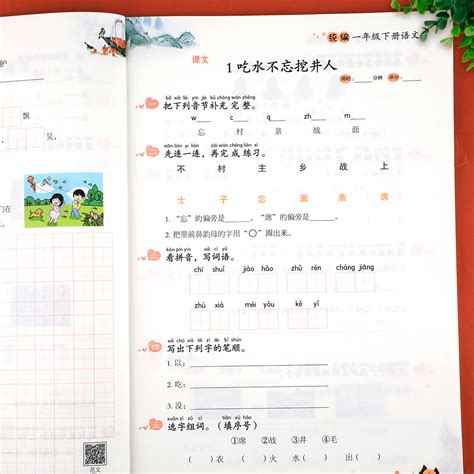 护
飘
吴
们在
范文
统编 一年级下册语文
课文
1 吃水不忘挖井人
用时: 分钟 评分:
一
bǎ xià liè yīn jié bǔ chōng wán zhěng
把下列音节补充完整。
w____ c____ q____ zh____ m____
忘 村 亲 战 面
二
xiān lián yi lián zài wán chéng liàn xí
先连一连,再完成练习。
不 村 主 乡 战 上
士 子 忘 面 亲 席
1. “忘”的偏旁是______,“席”的偏旁是______。
2. 把带前鼻韵母的字用“○”圈出来。
三
kàn pīn yīn xiě cí yǔ
看拼音,写词语。
chī shuǐ jiào hào zhǔ rén cháng jiāng
zhù xià méi yǒu kè hù
四
xiě chū xià liè zì de bǐ shùn
写出下列字的笔顺。
1. 以:
2. 吃:
3. 没:
五
xuǎn zì zǔ cí tián xù hào
选字组词。(填序号)
①席 ②战 ③井 ④毛
( )衣 ( )火 ( )水 出( )